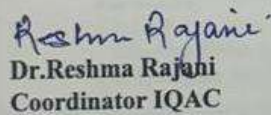 Reshma Rajani
Dr.Reshma Rajani
Coordinator IQAC